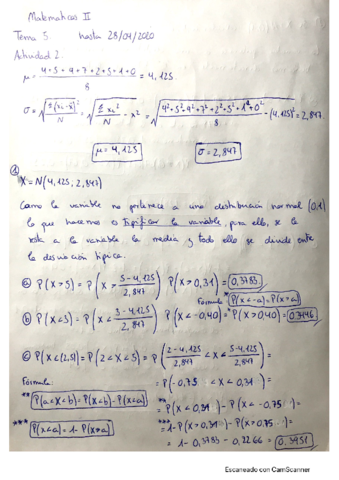 Matematicas II
Tema 5 hasta 28/04/2020
Actividad 2.
μ = 4+5+4+7+2+5+1+0 / 8 = 4,125
σ = √(Σ(xi-x̄)² / N) = √(Σxi² / N - x̄²) = √(4²+5²+4²+7²+2²+5²+1²+0² / 8 - (4,125)²) = 2,847
μ = 4,125 σ = 2,847
①
X = N(4,125; 2,847)
Como la variable no pertenece a una distribución normal (0,1)
lo que hacemos es tipificar la variable, para ello, se le
resta a la variable la media y todo ello se divide entre
la desviación típica.
ⓐ P(X>5) = P(X > 5-4,125 / 2,847) P(X>0,31) = 0,3783.
Fórmula * P(X<-a)=P(X>a)
ⓑ P(X<3) = P(X < 3-4,125 / 2,847) P(X<-0,40) =* P(X>0,40) = 0,3446
ⓒ P(X<(2,5)) = P(2<X<5) = P(2-4,125 / 2,847 < X < 5-4,125 / 2,847) =
= P(-0,75 < X < 0,31) =
Fórmula:
** P(a<X<b) = P(X<b)-P(X<a) **= P(X<0,31) - P(X<-0,75) =
*** P(X<a) = 1-P(X>a) ***= 1-P(X>0,31) - P(X>0,75) =
= 1-0,3783-0,2266 = 0,3951
Escaneado con CamScanner